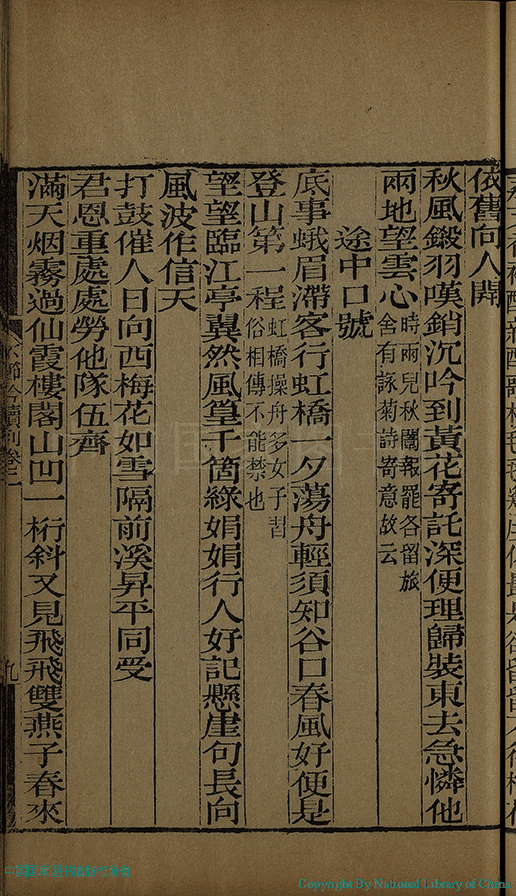 依舊向人開
秋風鎩羽嘆銷沉吟到黃花寄託深便理歸裝東去急憐他
兩地望雲心時兩兒秋闈報罷各留旅舍有詠菊詩寄意故云
途中口號
底事蛾眉滯客行虹橋一夕蕩舟輕須知谷口春風好便是
登山第一程虹橋操舟多女子習俗相傳不能禁也
望望臨江亭翼然風篁千箇綠娟娟行人好記懸崖句長向
風波作信天
打鼓催人日向西梅花如雪隔前溪昇平同受
君恩重處處勞他隊伍齊
滿天烟霧過仙霞樓閣山凹一桁斜又見飛飛雙燕子春來
九
Copyright By National Library of China